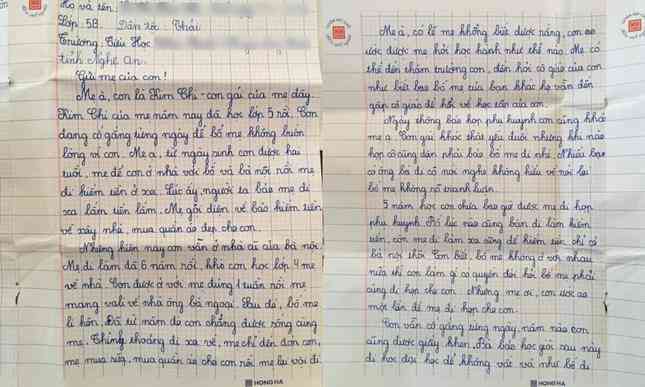 Họ và tên:
Lớp 5B. Dân tộc: Thái
Trường Tiểu Học
tỉnh Nghệ An.
Gửi mẹ của con!
Mẹ à, con là Kim Chi - con gái của mẹ đây.
Kim Chi của mẹ năm nay đã học lớp 5 rồi. Con
đang cố gắng từng ngày để bố mẹ không buồn
lòng vì con. Mẹ ạ, từ ngày sinh con được hai
tuổi, mẹ để con ở nhà với bố và bà nội rồi mẹ
đi kiếm tiền ở xa. Lúc ấy, người ta bảo mẹ đi
xa lắm tiền lắm. Mẹ gọi điện về bảo kiếm tiền
về xây nhà, mua quần áo đẹp cho con.
Nhưng hiện nay con vẫn ở nhà cũ của bà nội.
Mẹ đi làm đã 6 năm rồi, khi con học lớp 4 mẹ
về nhà. Con được ở với mẹ đúng 1 tuần rồi mẹ
mang vali về nhà ông bà ngoại. Sau đó, bố mẹ
li hôn. Đã từ năm đó con chẳng được sống cùng
mẹ. Thỉnh thoảng đi xa về, mẹ chỉ đến đón con,
mẹ mua sữa, mua quần áo cho con rồi mẹ lại vội đi.
HONG HA
Mẹ à, có lẽ mẹ không biết được rằng, con ao
ước được mẹ hỏi học hành như thế nào. Mẹ có
thể đến thăm trường con, đến hỏi cô giáo của con
như biết bao bố mẹ của bạn khác họ vẫn đến
gặp cô giáo để hỏi về học tập của con.
Ngày thông báo họp phụ huynh con cũng khác
mẹ ạ. Con gái khác thật yếu đuối nhưng khi nào
họp cô cũng dặn phải bảo bố mẹ đi nhé. Nhiều bạn
có ông bà đi có nói nghe không hiểu về nói lại
bố mẹ không rõ thành luôn.
5 năm học con chưa bao giờ được mẹ đi họp
phụ huynh. Bố lúc nào cũng bận đi làm kiếm
tiền, còn mẹ đi làm xa cũng để kiếm tiền, chỉ có
bà nội thôi. Con biết, bố mẹ không ở với nhau
nữa thì con làm gì có quyền đòi hỏi bố mẹ phải
cùng đi họp cho con. Nhưng mẹ ơi, con ước ao
một lần để mẹ đi họp cho con.
Con vẫn cố gắng từng ngày, năm nào con
cũng được giấy khen. Bà bảo học giỏi sau này
đi học đại học để không vất vả như bố đi
HONG HA